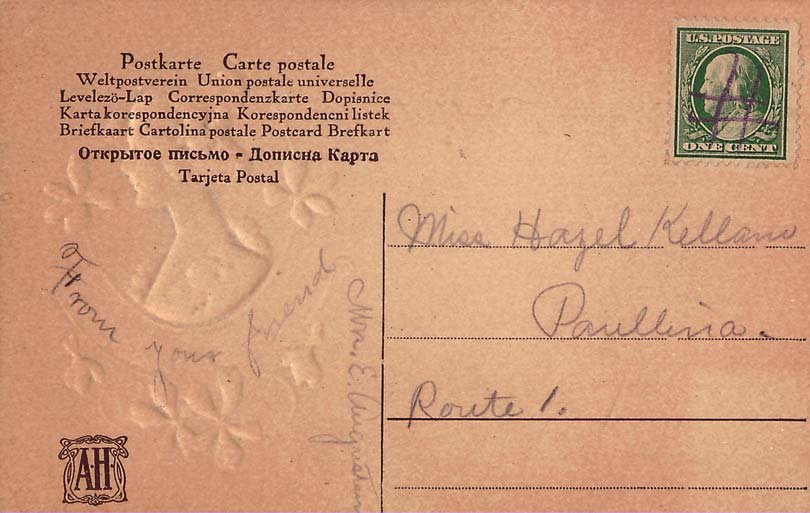 Postkarte Carte postale
Weltpostverein Union postale universelle
Levelezö-Lap Correspondenzkarte Dopisnice
Karta korespondencyjna Korespondencni listek
Briefkaart Cartolina postale Postcard Brefkart
Открытое письмо - Дописна Карта
Tarjeta Postal
U.S. POSTAGE
ONE CENT
Miss Hazel
Paullina.
Route 1.
From your friend
E.
A.H